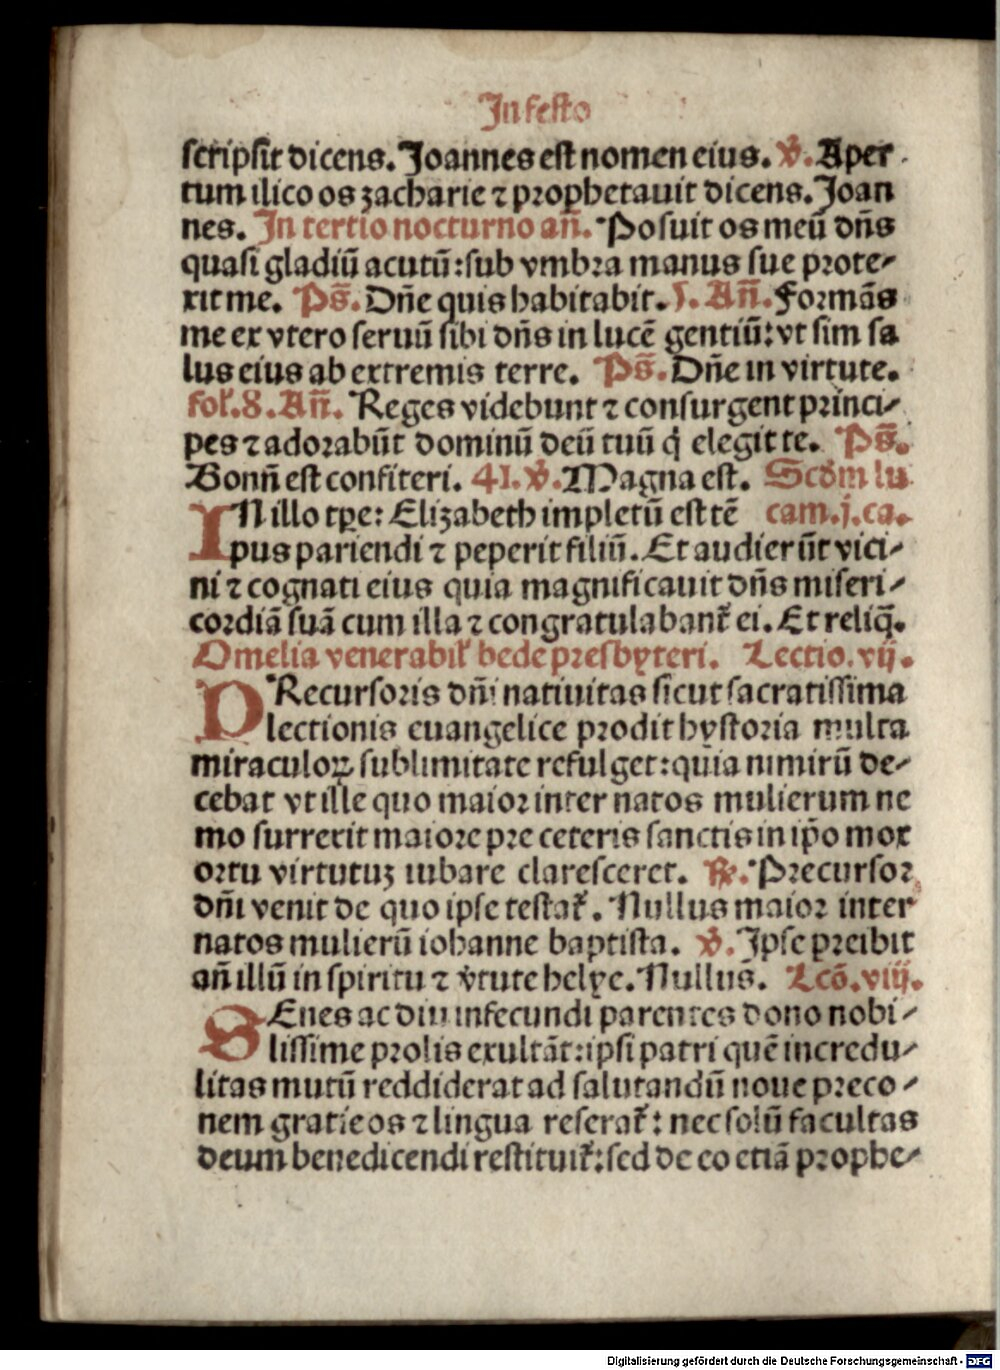 In festo
scripsit dicens. Joannes est nomen eius. ℣. Aper
tum ilico os zacharie ⁊ prophetauit dicens. Joan
nes. In tertio nocturno añ. Posuit os meū dn̄s
quasi gladiū acutū: sub vmbra manus sue prote-
xit me. Ps̄. Dn̄e quis habitabit. 5. Añ. Formās
me ex vtero seruū sibi dn̄s in lucē gentiū: vt sim sa
lus eius ab extremis terre. Ps̄. Dn̄e in virtute.
fol. 8. Añ. Reges videbunt ⁊ consurgent princi-
pes ⁊ adorabūt dominū deū tuū q̇ elegit te. Ps̄.
Bonū est confiteri. 41. ℣. Magna est. Scd̄m lu
IN illo tp̄e: Elizabeth impletū est tē cam. j. ca.
pus pariendi ⁊ peperit filiū. Et audierūt vici-
ni ⁊ cognati eius quia magnificauit dn̄s miseri-
cordiā suā cum illa ⁊ congratulabant᷑ ei. Et reliq̄.
Omelia venerabil᷑ bede presbyteri. Lectio. vij.
PRecursoris dn̄i natiuitas sicut sacratissima
lectionis euangelice prodit hystoria multa
miraculoꝝ sublimitate refulget: quia nimirū de-
cebat vt ille quo maior inter natos mulierum ne
mo surrexit maiore pre ceteris sanctis in ip̄o mox
ortu virtutuꝫ iubare claresceret. ℟. Precursor
dn̄i venit de quo ipse testat᷑. Nullus maior inter
natos mulierū iohanne baptista. ℣. Ipse preibit
añ illū in spiritu ⁊ v̇tute helye. Nullus. Lcō. viij.
SEnes ac diu infecundi parentes dono nobi-
lissime prolis exultāt: ipsi patri quē incredu-
litas mutū reddiderat ad salutandū noue preco-
nem gratie os ⁊ lingua reserat᷑: nec solū facultas
deum benedicendi restituit᷑: sed de eo etiā prophe-
Digitalisierung gefördert durch die Deutsche Forschungsgemeinschaft - DFG